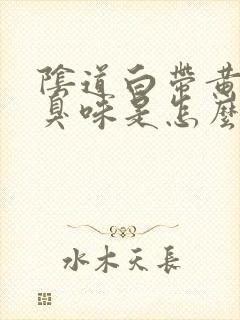 陰道白帶黃
臭味是怎麼
水木天長